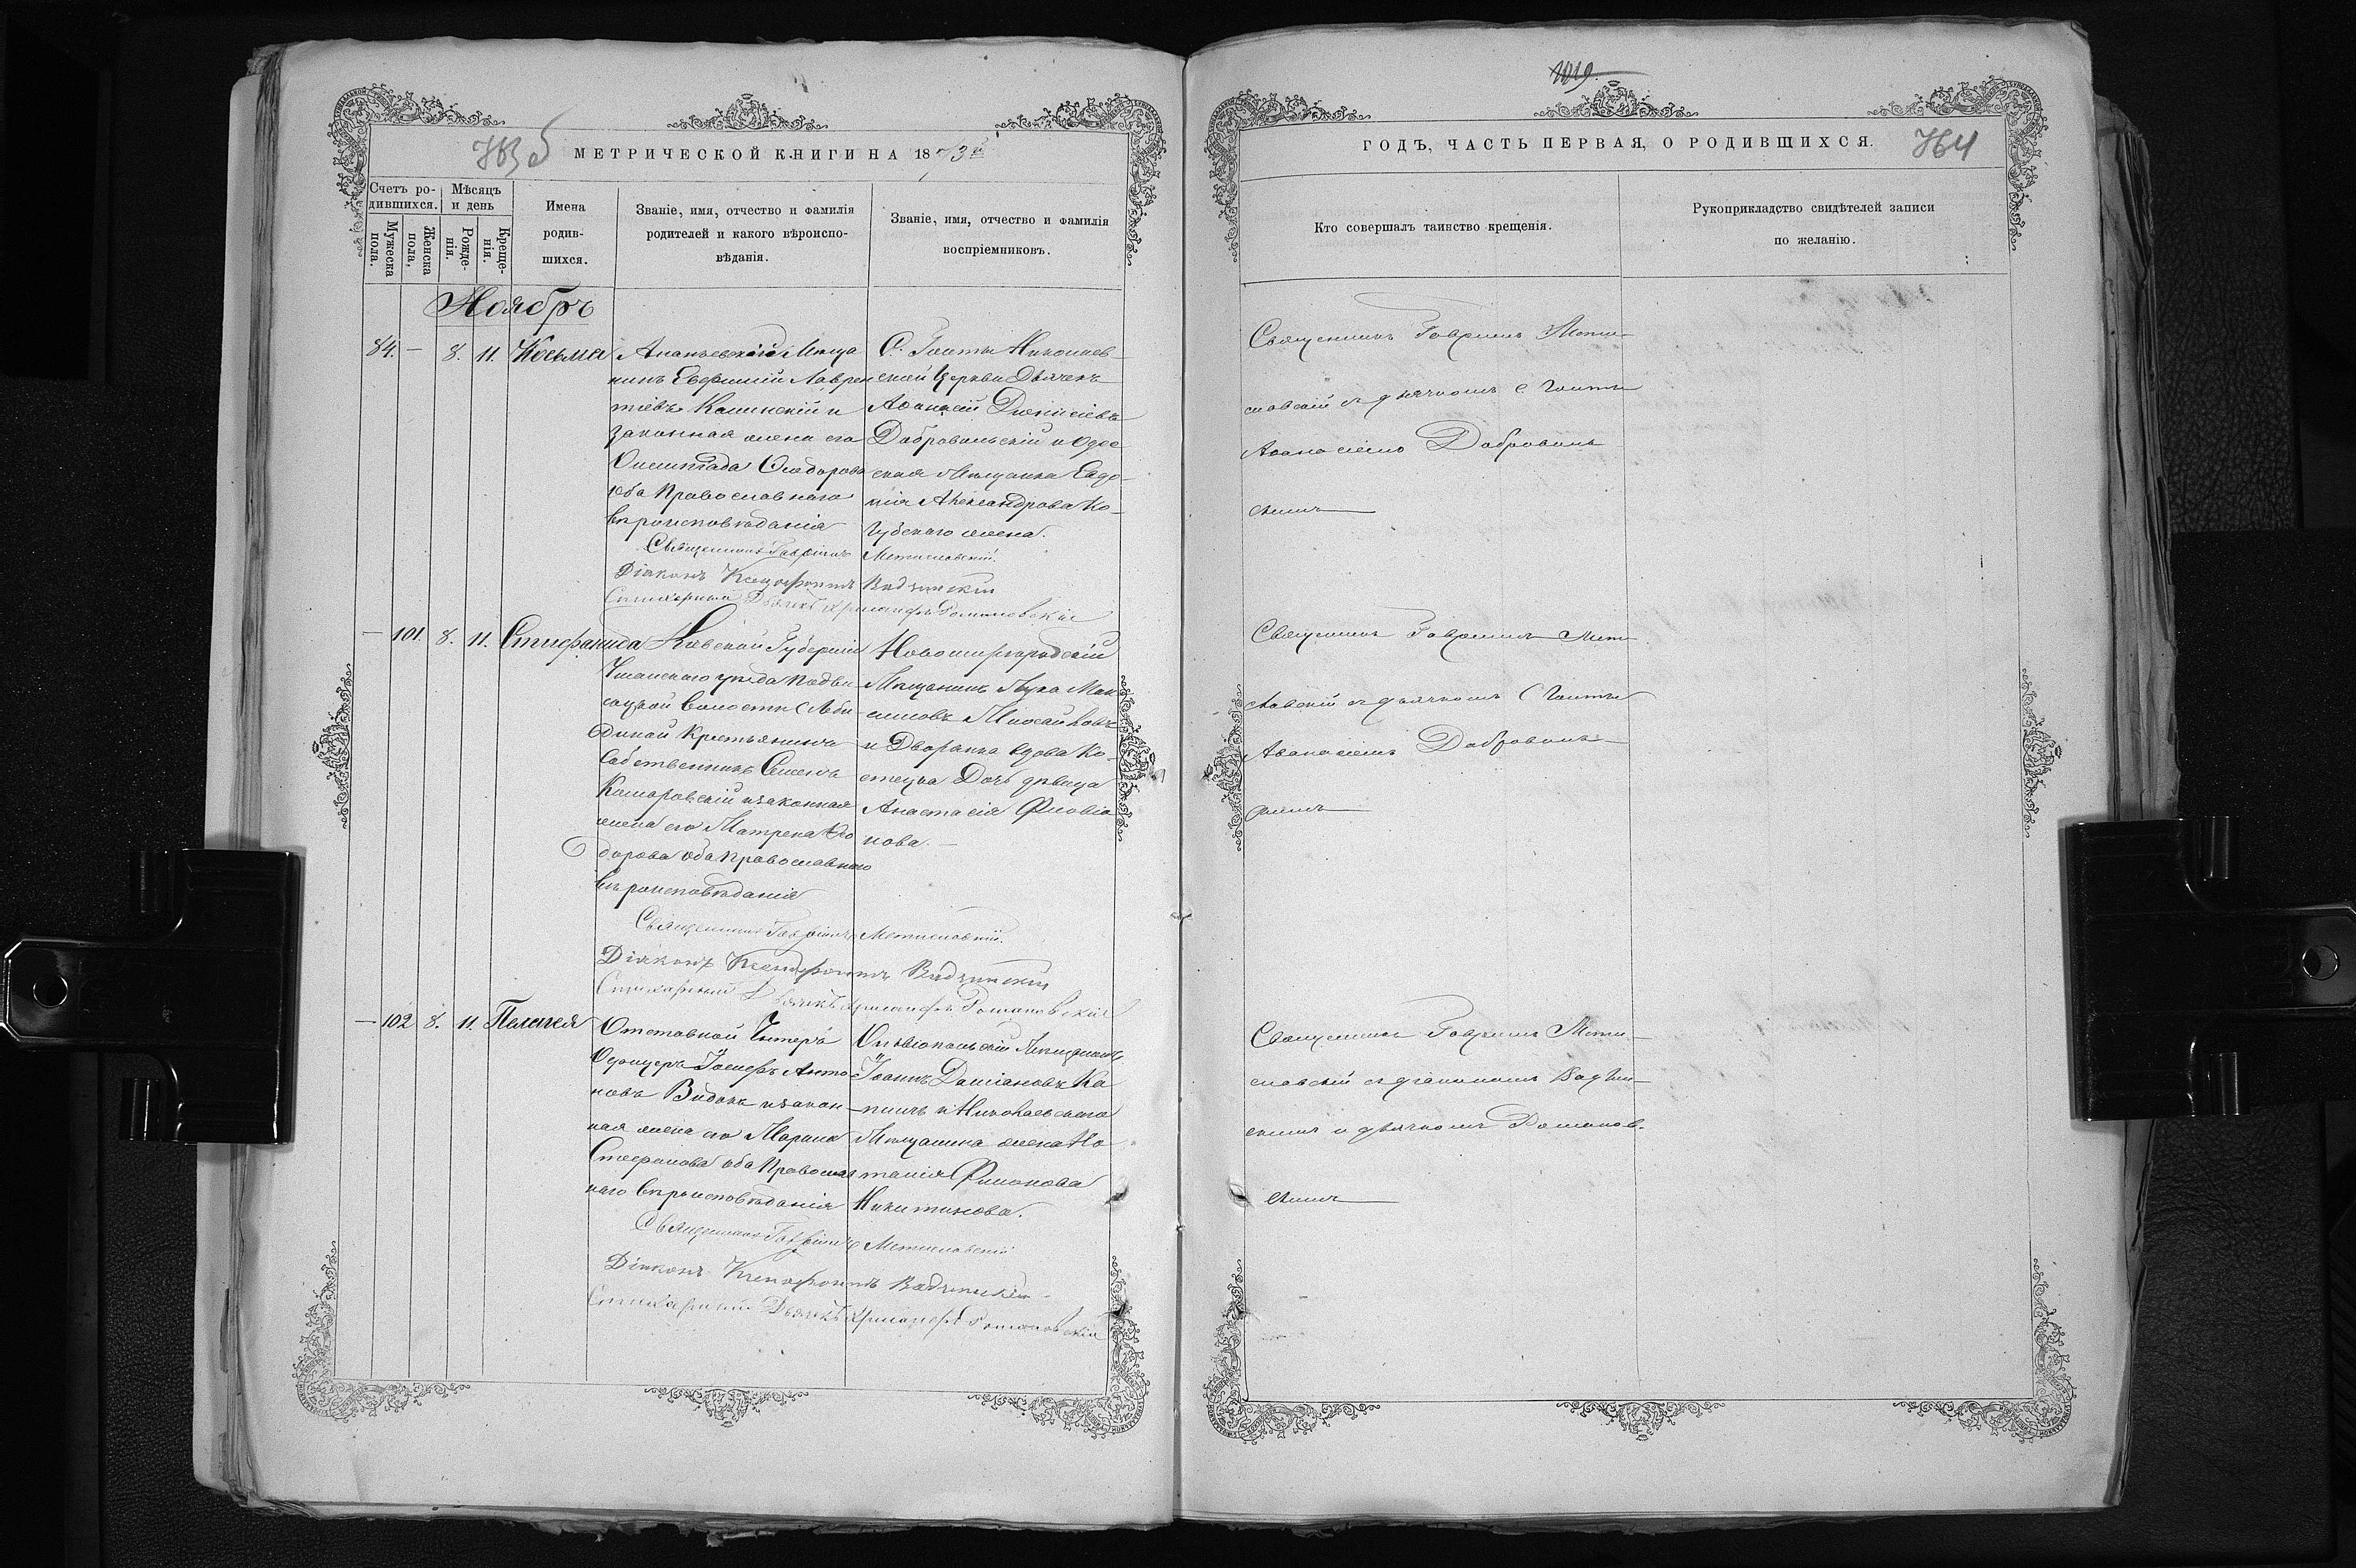 МЕТРИЧЕСКОЙ КНИГИ НА 1873й
Счетъ ро-
дившихся.
Мѣсяцъ
и день
Мужеска
пола.
Женска
пола.
Рожде-
нія.
Креще-
нія.
Имена
родив-
шихся.
Званіе, имя, отчество и фамилія
родителей и какого вѣроиспо-
вѣданія.
Званіе, имя, отчество и фамилія
воспріемниковъ.
Ноябръ
84. — 8. 11. Косьма
Ананьевскій Мѣща
нинъ Евфимій Лаврен
тіевъ Калинскій и
законная жена его
Ѳеодорова
оба Православнаго
вѣроисповѣданія
С. Голты Николаев
ской Церкви Дьячекъ
Аѳанасій Діонисіевъ
Добровольскій и Одес
ская Мѣщанка Евдо-
кія Александрова Ко-
жена.
Священникъ Гавріилъ Метиславскій.
Діаконъ Ксенофонтъ
Стихарный Дьячекъ Хрисанфъ Романовскій
— 101. 8. 11. Стефанида
Кіевской Губерніи
Уманскаго уѣзда Подви
соцкой волости С. Лѣби
динки Крестьянинъ
Собственникъ Семенъ
Комаровскій и законная
жена его Матрена Ѳео
дорова оба Православнаго
вѣроисповѣданія
Новомиргородскій
Мѣщанинъ Лука Мак
симовъ
и Дворянка вдова Ко-
Дочь дѣвица
Анастасія Филовіа
нова. —
Священникъ Гавріилъ Метиславскій.
Діаконъ Ксенофонтъ
Стихарный Дьячекъ Хрисанфъ Романовскій
— 102 8. 11. Пелагея
Отставной Унтеръ
Офицеръ Іосифъ Анто
новъ Видокъ и закон
ная жена его Марина
Стефанова оба Православ
наго вѣроисповѣданія
Ольвіопольскій Мѣщанинъ
Іоаннъ Даміановъ Ка
и Николаевскаго
Мѣщанина жена На
талія Филонова
Никитинова.
Священникъ Гавріилъ Метиславскій
Діаконъ Ксенофонтъ
Стихарный Дьячекъ Хрисанфъ Романовскій
1019.
ГОДЪ, ЧАСТЬ ПЕРВАЯ, О РОДИВШИХСЯ.
764
Кто совершалъ таинство крещенія.
Рукоприкладство свидѣтелей записи
по желанію.
Священникъ Гавріилъ Мети-
славскій съ дьячкомъ С. Голты
Аѳанасіемъ Доброволь
скимъ
Священникъ Гавріилъ Мети
славскій съ дьячкомъ С. Голты
Аѳанасіемъ Доброволь
скимъ
Священникъ Гавріилъ Мети-
славскій съ діакономъ
скимъ и дьячкомъ Романов-
скимъ